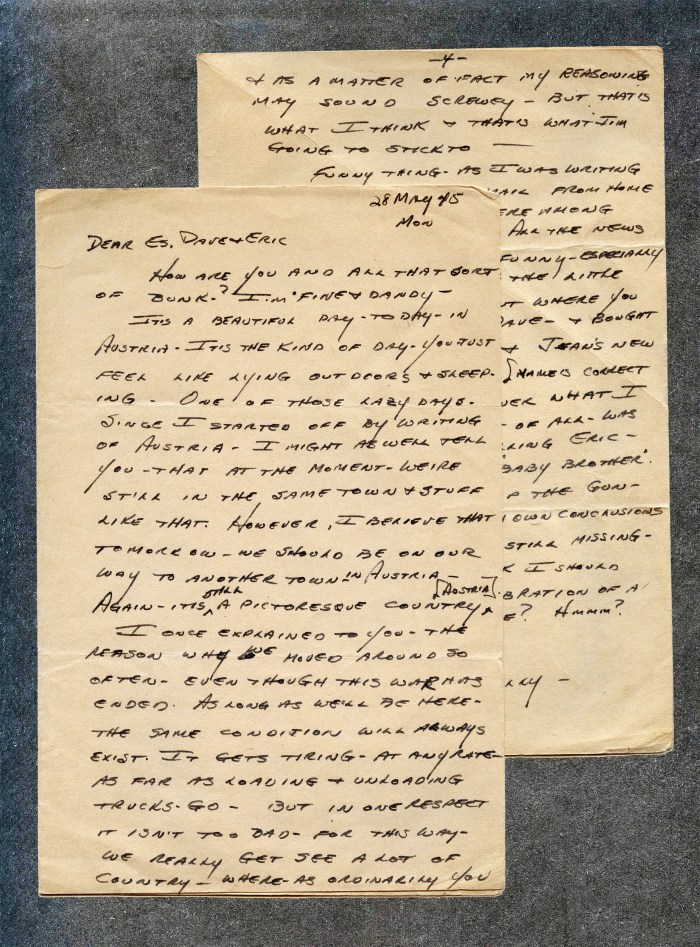 28 MAY 45
MON
DEAR ES, DAVE & ERIC
HOW ARE YOU AND ALL THAT SORT
OF BUNK? I'M FINE & DANDY—
IT'S A BEAUTIFUL DAY-TO DAY-IN
AUSTRIA-IT'S THE KIND OF DAY-YOU JUST
FEEL LIKE LYING OUTDOORS & SLEEP-
ING. ONE OF THOSE LAZY DAYS.
SINCE I STARTED OFF BY WRITING
OF AUSTRIA-I MIGHT AS WELL TELL
YOU-THAT AT THE MOMENT-WE'RE
STILL IN THE SAME TOWN & STUFF
LIKE THAT. HOWEVER, I BELIEVE THAT
TOMORROW-WE SHOULD BE ON OUR
WAY TO ANOTHER TOWN IN AUSTRIA—
AGAIN-IT'S STILL A PICTURESQUE COUNTRY [AUSTRIA].
I ONCE EXPLAINED TO YOU-THE
REASON WHY WE MOVED AROUND SO
OFTEN-EVEN THOUGH THIS WAR HAS
ENDED. AS LONG AS WE'LL BE HERE-
THE SAME CONDITION WILL ALWAYS
EXIST. IT GETS TIRING-AT ANY RATE-
AS FAR AS LOADING & UNLOADING
TRUCKS-GO- BUT IN ONE RESPECT
IT ISN'T TOO BAD-FOR THIS WAY-
WE REALLY GET SEE A LOT OF
COUNTRY-WHERE-AS ORDINARILY YOU
-4-
& AS A MATTER OF FACT MY REASONING
MAY SOUND SCREWEY-BUT THAT'S
WHAT I THINK & THAT'S WHAT I'M
GOING TO STICK TO —
FUNNY THING-AS I WAS WRITING
MAIL FROM HOME
ERE AMONG
ALL THE NEWS
FUNNY-ESPECIALLY
THE LITTLE
T WHERE YOU
DAVE- & BOUGHT
& JEAN'S NEW
[NAME IS CORRECT
VER WHAT I
-OF ALL-WAS
LING ERIC-
'BABY BROTHER'.
P THE GUN-
OWN CONCLUSIONS
STILL MISSING-
K I SHOULD
BRATION OF A
E? HMMM?
LLY —